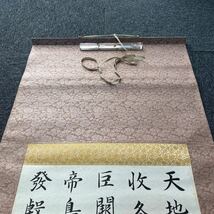 天地
收冬
巨闕
帝鳥
發殷